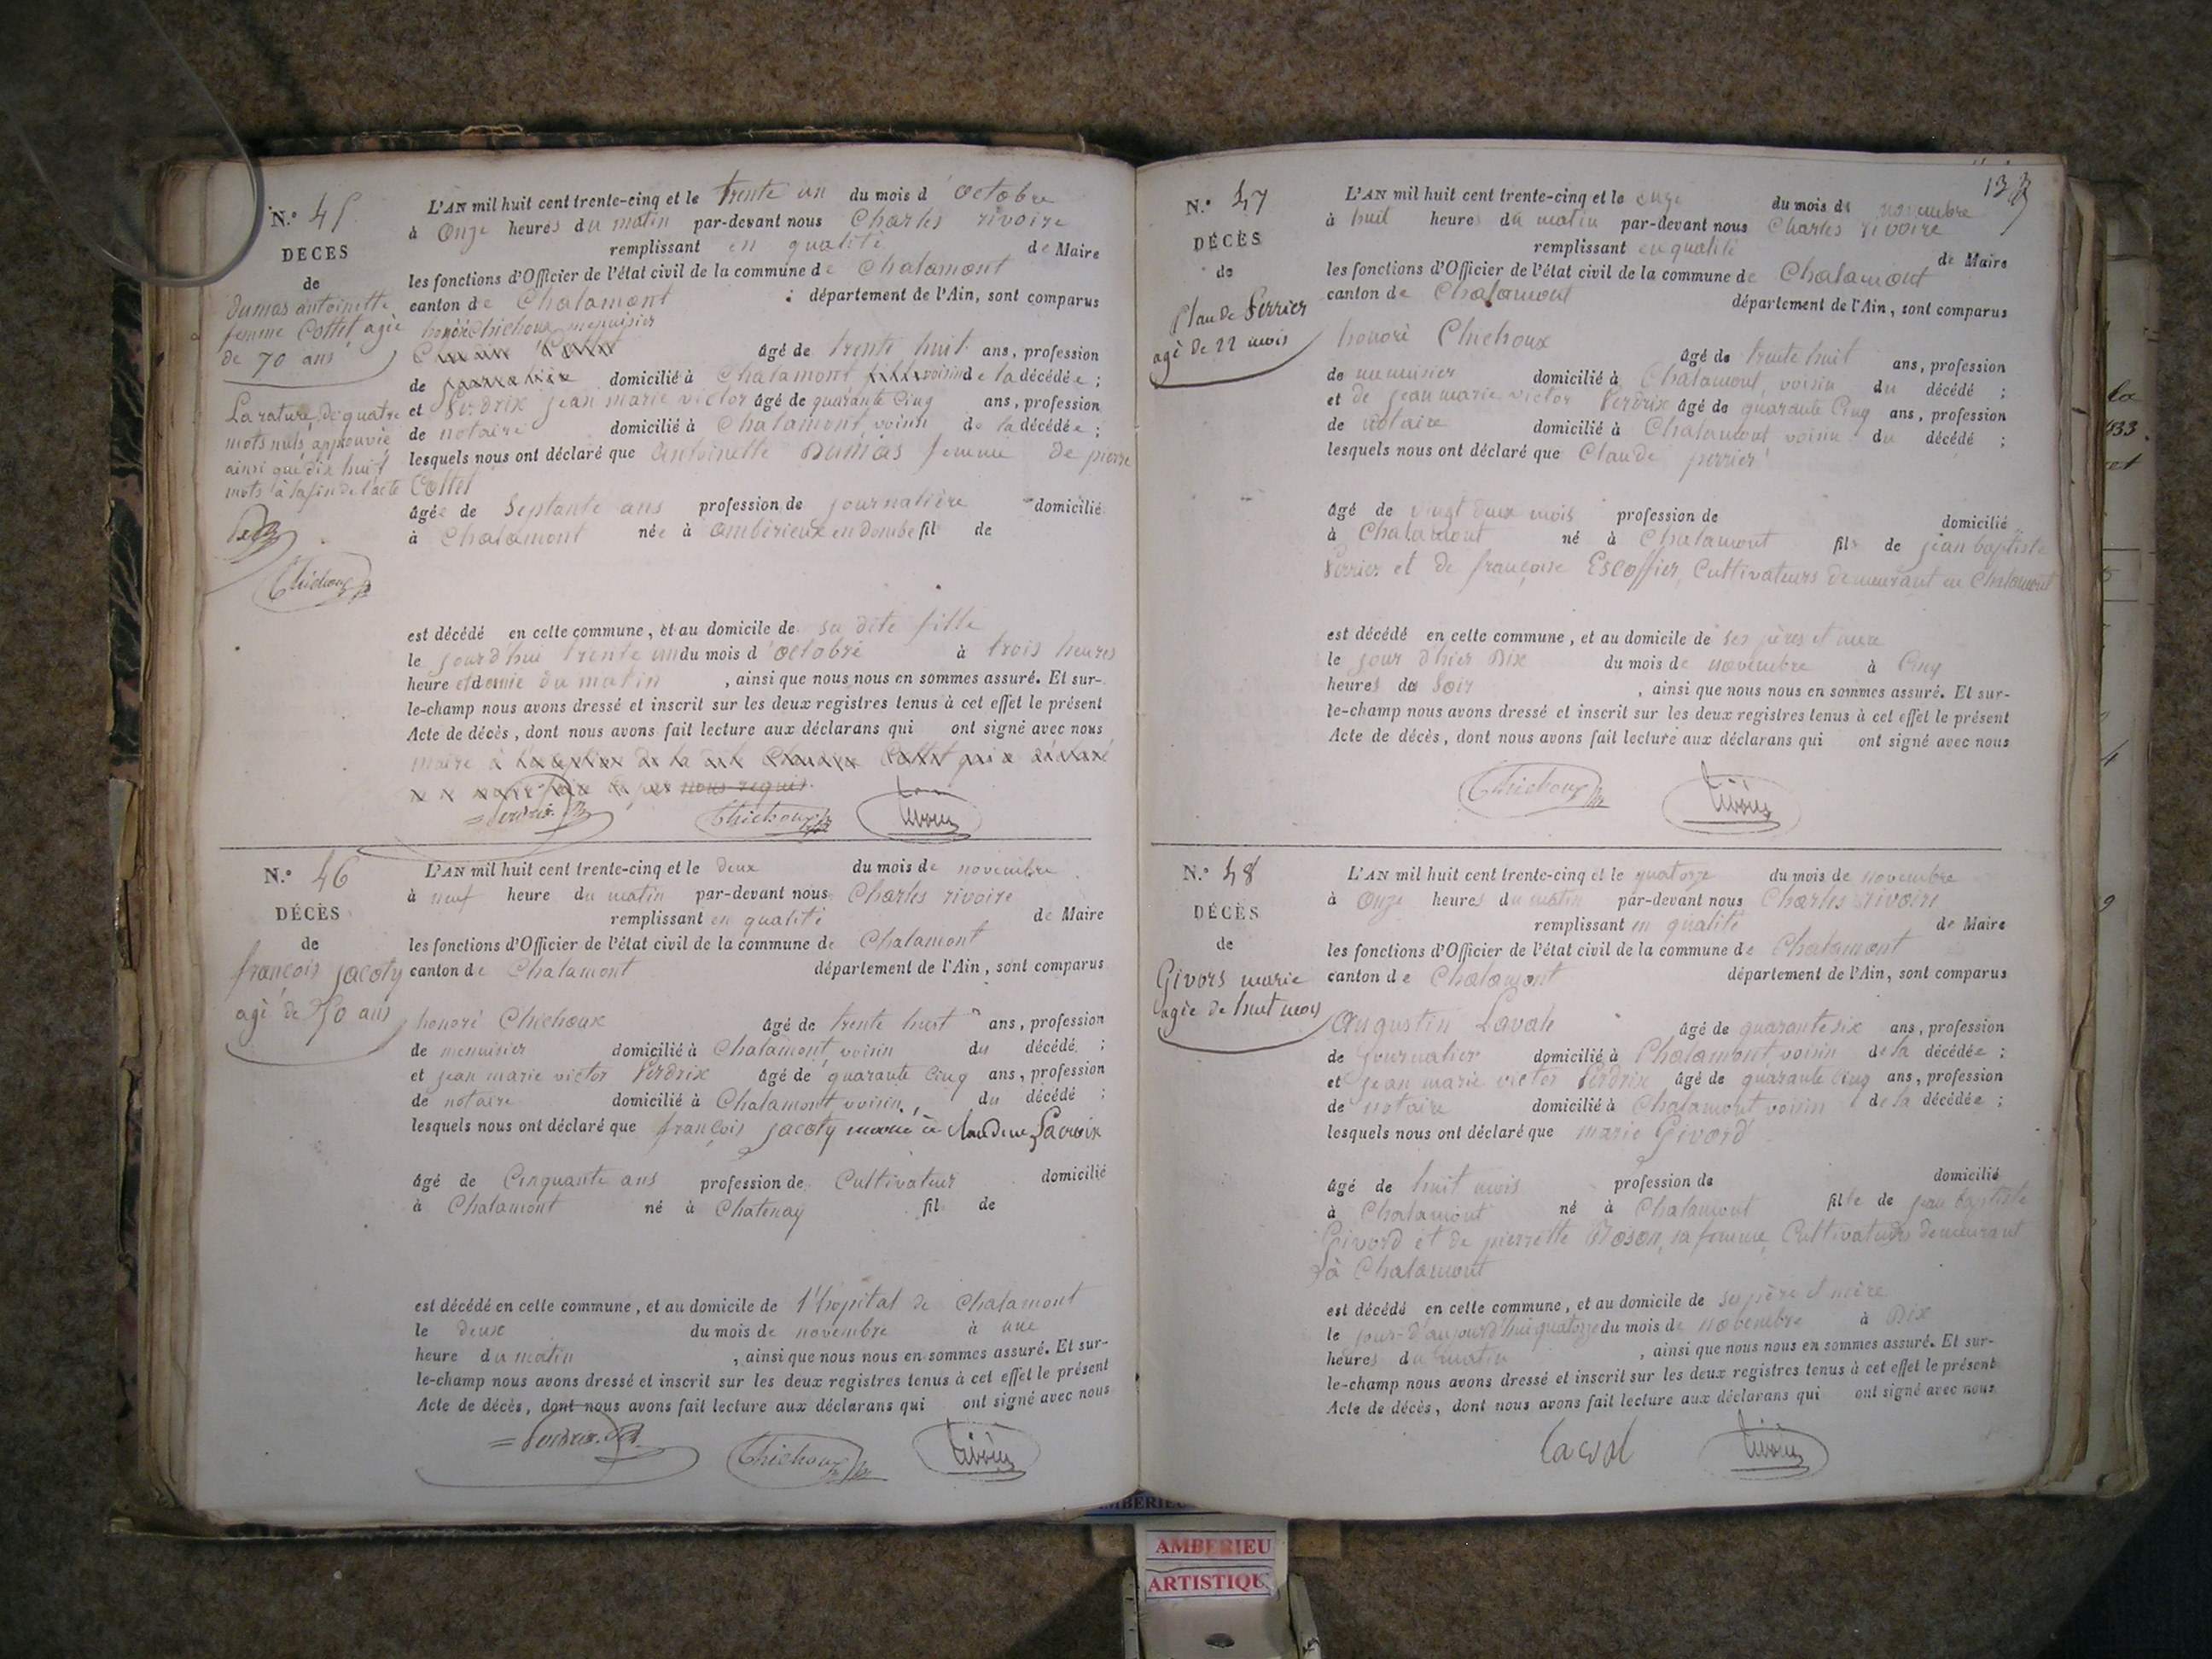 N.° 45
DECES
de
Dumas antoinette
femme Cottet agée
de 70 ans
La rature de quatre
mots nuls approuvée
ainsi que dix huit
mots à la fin de l'acte
Chichoux
L'AN mil huit cent trente-cinq et le trente un du mois d'octobre
à Onze heures du matin par-devant nous Charles rivoire
remplissant en qualité de Maire
les fonctions d'Officier de l'état civil de la commune de Chalamont
canton de Chalamont département de l'Ain, sont comparus
honoré Chichoux menuisier
âgé de trente huit ans, profession
de domicilié à Chalamont voisin de la décédée ;
et Perdrix jean marie victor âgé de quarante Cinq ans, profession
de notaire domicilié à Chalamont voisin de la décédée ;
lesquels nous ont déclaré que Antoinette Dumas femme de pierre
Cottet
âgée de Septante ans profession de journalière domicilié
à Chalamont née à ambérieux en dombe fil de
est décédé en cette commune, et au domicile de sa dite fille
le jourd'hui trente un du mois d'octobre à trois heures
heure et demie du matin, ainsi que nous nous en sommes assuré. Et sur-
le-champ nous avons dressé et inscrit sur les deux registres tenus à cet effet le présent
Acte de décès, dont nous avons fait lecture aux déclarans qui ont signé avec nous
maire
nous requis.
Perdrix Chichoux Rivoire
N.° 46
DÉCÈS
de
françois jacoty
agé de 50 ans
L'AN mil huit cent trente-cinq et le deux du mois de novembre
à neuf heure du matin par-devant nous Charles rivoire
remplissant en qualité de Maire
les fonctions d'Officier de l'état civil de la commune de Chalamont
canton de Chalamont département de l'Ain, sont comparus
honoré Chichoux âgé de trente huit ans, profession
de menuisier domicilié à Chalamont voisin du décédé ;
et jean marie victor Perdrix âgé de quarante Cinq ans, profession
de notaire domicilié à Chalamont voisin, du décédé ;
lesquels nous ont déclaré que françois jacoty marié à claudine Lacroix
âgé de Cinquante ans profession de Cultivateur domicilié
à Chalamont né à Chatenay fil de
est décédé en cette commune, et au domicile de l'hopital de Chalamont
le deux du mois de novembre à une
heure du matin, ainsi que nous nous en sommes assuré. Et sur-
le-champ nous avons dressé et inscrit sur les deux registres tenus à cet effet le présent
Acte de décès, dont nous avons fait lecture aux déclarans qui ont signé avec nous
Perdrix Chichoux Rivoire
N.° 47
DÉCÈS
de
Claude Perrier
agé de 22 mois
L'AN mil huit cent trente-cinq et le onze du mois de novembre
à huit heures du matin par-devant nous Charles rivoire
remplissant en qualité de Maire
les fonctions d'Officier de l'état civil de la commune de Chalamont
canton de Chalamont département de l'Ain, sont comparus
honoré Chichoux âgé de trente huit ans, profession
de menuisier domicilié à Chalamont, voisin du décédé ;
et de jean marie victor Perdrix âgé de quarante Cinq ans, profession
de notaire domicilié à Chalamont voisin du décédé ;
lesquels nous ont déclaré que Claude perrier
âgé de vingt deux mois profession de domicilié
à Chalamont né à Chalamont fils de jean baptiste
Perrier et de françoise Escoffier, Cultivateurs demeurant en Chalamont
est décédé en cette commune, et au domicile de ses pères et mere
le jour d'hier Dix du mois de novembre à Cinq
heures du Soir, ainsi que nous nous en sommes assuré. Et sur-
le-champ nous avons dressé et inscrit sur les deux registres tenus à cet effet le présent
Acte de décès, dont nous avons fait lecture aux déclarans qui ont signé avec nous
Chichoux Rivoire
N.° 48
DÉCÈS
de
Givors marie
agée de huit mois
L'AN mil huit cent trente-cinq et le quatorze du mois de novembre
à Onze heures du matin par-devant nous Charles rivoire
remplissant en qualité de Maire
les fonctions d'Officier de l'état civil de la commune de Chalamont
canton de Chalamont département de l'Ain, sont comparus
Augustin Lavale âgé de quarante six ans, profession
de journalier domicilié à Chalamont voisin de la décédée ;
et jean marie victor Perdrix âgé de quarante Cinq ans, profession
de notaire domicilié à Chalamont voisin de la décédée ;
lesquels nous ont déclaré que marie Givord
âgé de huit mois profession de domicilié
à Chalamont né à Chalamont fille de jean baptiste
Givord et de pierrette Boson, sa femme, Cultivateurs demeurant
à Chalamont
est décédé en cette commune, et au domicile de ses père et mère
le jour-d'aujourd'hui quatorze du mois de novembre à Dix
heures du matin, ainsi que nous nous en sommes assuré. Et sur-
le-champ nous avons dressé et inscrit sur les deux registres tenus à cet effet le présent
Acte de décès, dont nous avons fait lecture aux déclarans qui ont signé avec nous
Rivoire
AMBERIEU
ARTISTIQU